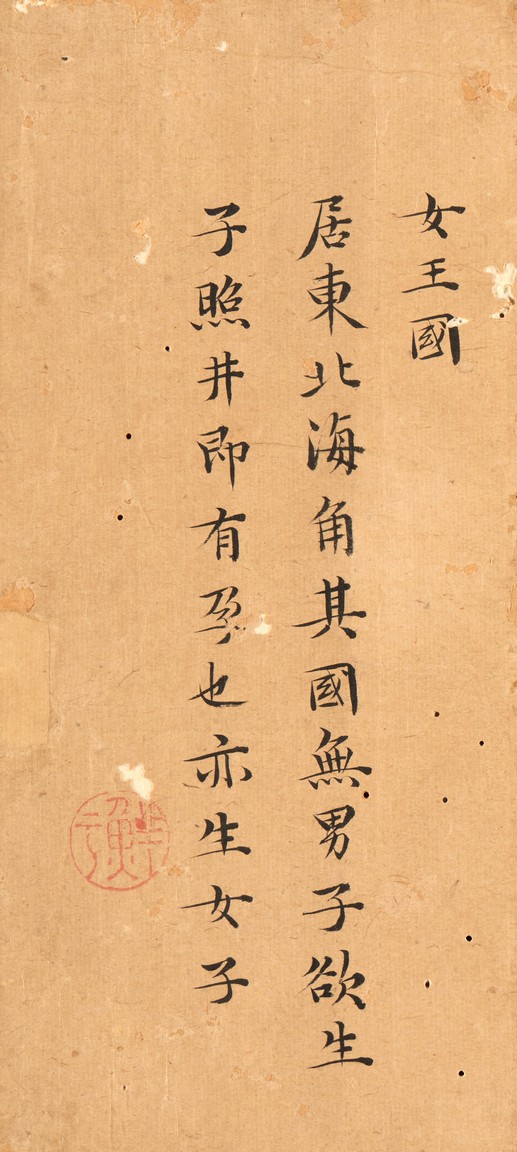 女王國
居東北海角其國無男子欲生
子照井即有孕也亦生女子